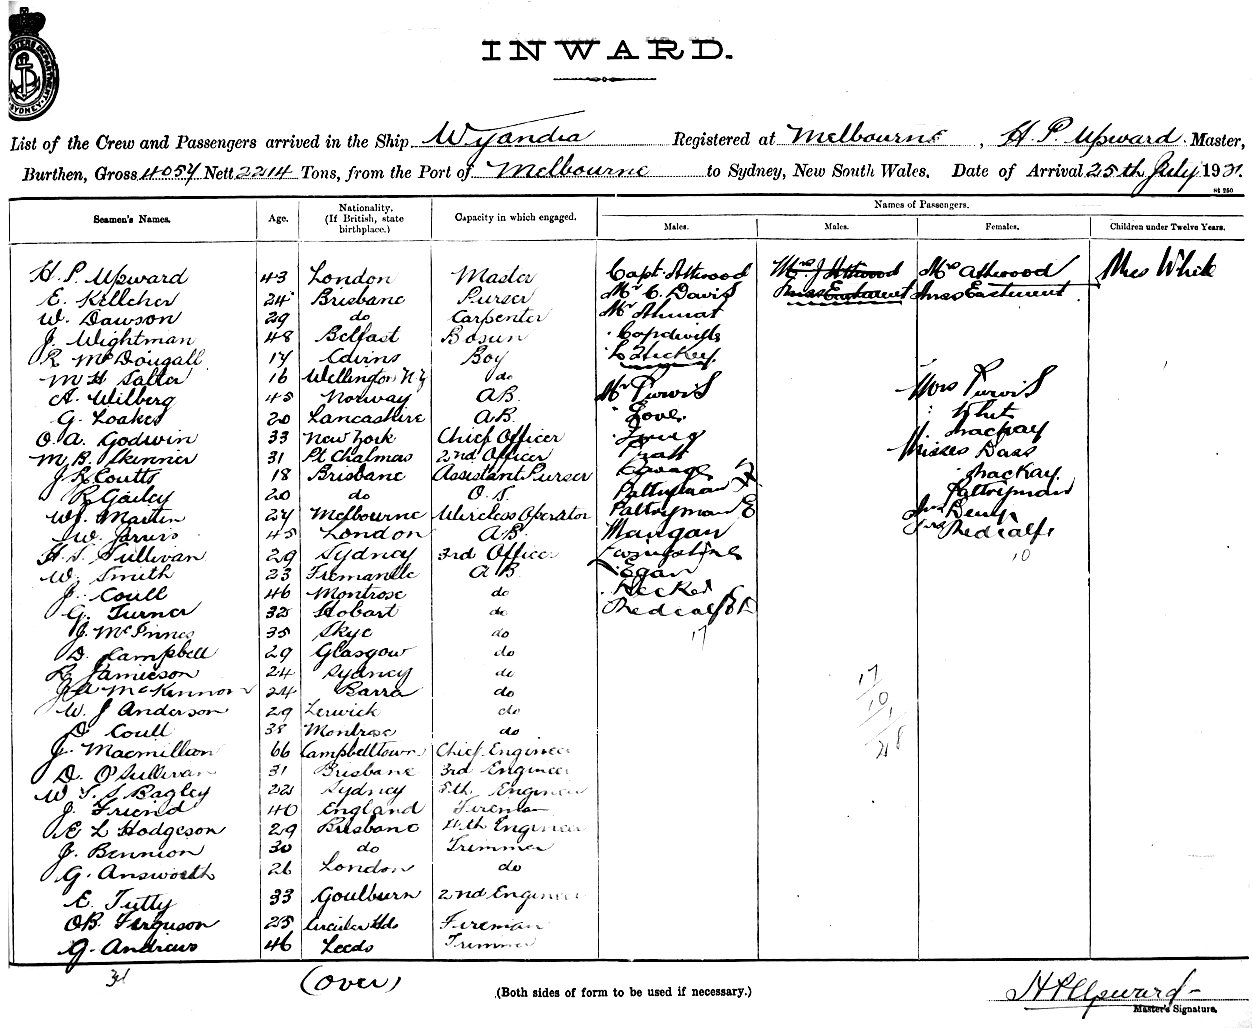 INWARD.
List of the Crew and Passengers arrived in the Ship Wyandra Registered at Melbourne, H. P. Upward. Master,
Burthen, Gross 4054 Nett 2214 Tons, from the Port of Melbourne to Sydney, New South Wales. Date of Arrival 25th July 1921.
St 250
Seamen's Names. Age. Nationality. (If British, state birthplace.) Capacity in which engaged. Names of Passengers.
Males. Males. Females. Children under Twelve Years.
H. P. Upward 43 London Master Capt. Attwood Mrs J Attwood Mrs Attwood Miss White
E. Kelleher 24 Brisbane Purser Mr C. Davis Miss Eastment Miss Eastment
W. Dawson 29 do Carpenter Mr
J. Wightman 48 Belfast Bosun
R McDougall 17 Boy
M H Salter 16 Wellington NZ do
A. Wilberg 45 Norway AB. Mr Purvis Mrs Purvis
G. Loakes 20 Lancashire AB. Love
O. A. Godwin 33 New York Chief Officer MacKay
M B. Skinner 31 Pt Chalmas 2nd Officer Pratt Misses Dass
J R Coutts 18 Brisbane Assistant Purser Savage MacKay.
R Gailey 20 do O.S. Paltryman Paltryman
W. Martin 27 Melbourne Wireless Operator Paltryman E
W. Jarvis 45 London AB. Mangan Medcalf
H. S. Sullivan 29 Sydney 3rd Officer 10
W. Smith 23 Fremantle AB Egan
J. Coull 46 Montrose do
G. Turner 32 Hobart do Medcalf
J. McInnes 35 Skye do 17
D. Campbell 29 Glasgow do
R Jamieson 24 Sydney do 17
McKinnon 24 Barra do 10
W. J Anderson 29 Lerwick do 1
D Coull 38 Montrose do 28
J. Macmillan 66 Campbelltown Chief Engineer
D. O'Sullivan 31 Brisbane 3rd Engineer
W T. S Bagley 22 Sydney 5th Engineer
J Friend 40 England Fireman
E L Hodgeson 29 Brisbane 4th Engineer
J. Bennion 30 do Trimmer
G. Answorth 26 London do
E. Tutty 33 Goulburn 2nd Engineer
OB. Ferguson 25 Fireman
G. Andrews 46 Leeds Trimmer
(over) (Both sides of form to be used if necessary.) H P Upward
Master's Signature.